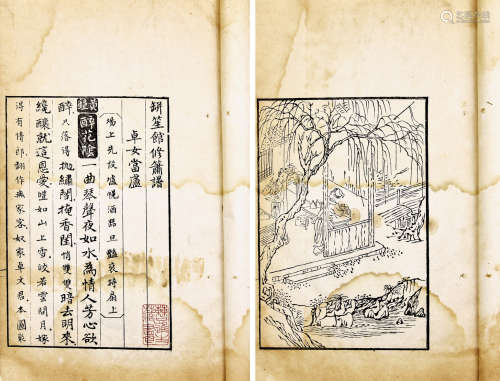 缾笙館修簫譜
卓女當壚
場上先設壚幌酒器旦豔裝持扇上
黃鐘 醉花陰 一曲琴聲夜如水為情人芳心欲
醉只落得拋繡閣掩香閨悄雙雙暗去明來
纔釀就這恩愛皚如山上雪皎若雲間月嫁
得有情郎翻作無家客奴家卓文君本圖